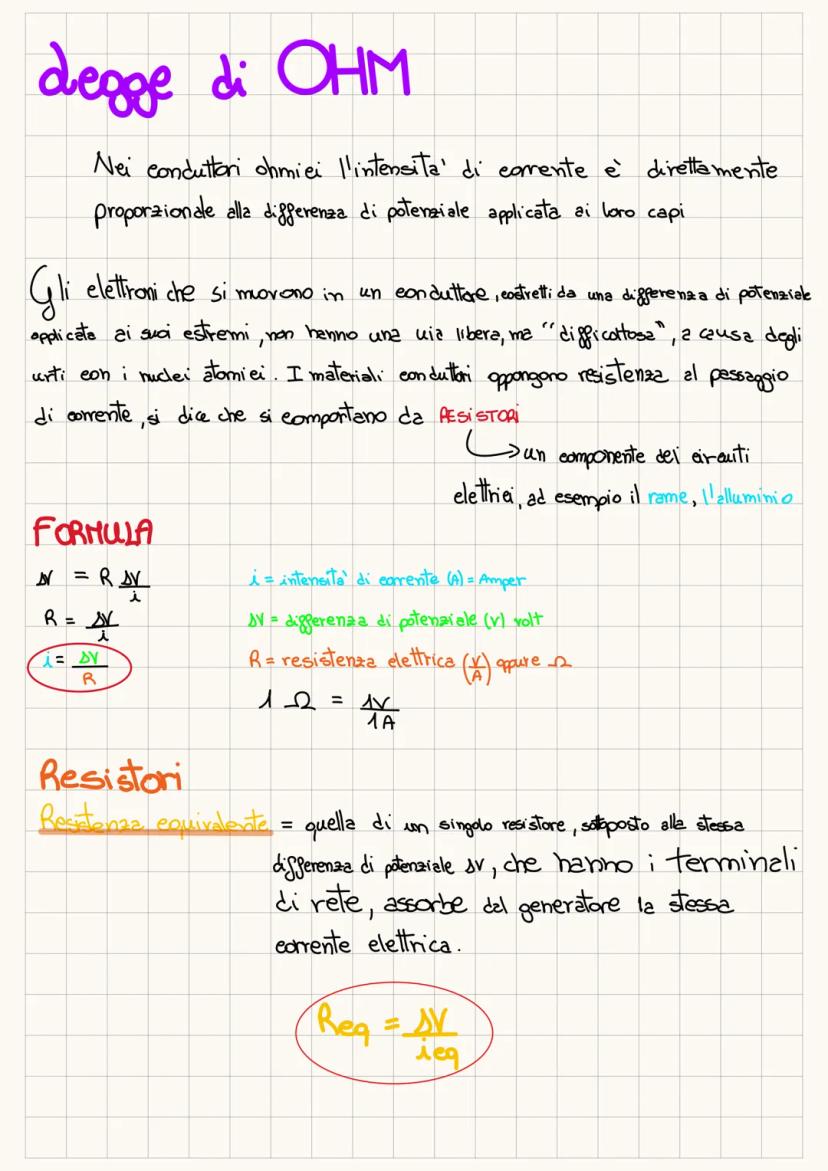 Legge di OHM
Nei conduttori ohmici l'intensita' di corrente è direttamente
proporzionale alla differenza di potenziale applicata ai loro capi
Gli elettroni che si movono in un conduttore, costretti da una differenza di potenziale
applicata ai suoi estremi, non hanno una via libera, ma "difficoltosa", a causa degli
urti con i nuclei atomici. I materiali conduttori oppongono resistenza al passaggio
di corrente, si dice che si comportano da RESISTORI
un componente dei circuiti
elettrici, ad esempio il rame, l'alluminio
FORMULA
ΔV = R ΔV/i
i = intensita' di corrente (A) = Amper
R = ΔV/i
ΔV = differenza di potenziale (V) volt
i = ΔV/R
R = resistenza elettrica (V/A) oppure Ω
1 Ω = 1V/1A
Resistori
Resistenza equivalente = quella di un singolo resistore, sottoposto alla stessa
differenza di potenziale ΔV, che hanno i terminali
di rete, assorbe dal generatore la stessa
corrente elettrica.
Req = ΔV/ieq